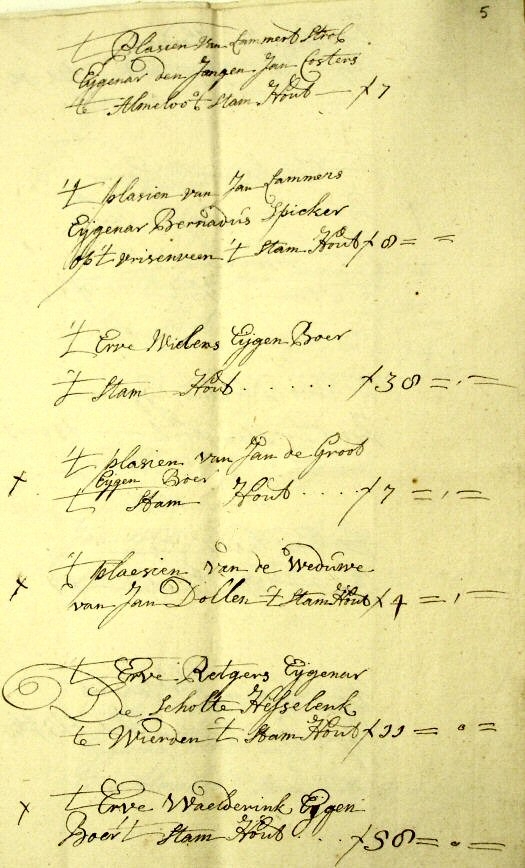 5
't plasien van Lammert Strob
Eijgenar den Jongen Jan Costers
te Almeloo 't Stam Hout — f 7
't plasien van Jan Lammers
Eijgenar Bernadus Spicker
op 't vrisenveen 't Stam Hout f 8 = =
't Erve Wielens Eijgen Boer
't Stam Hout . . . . . . f 38 = . =
x 't plasien van Jan de Groot
Eijgen Boer
't Stam Hout . . . . f 7 = , =
x 't plaesien van de Weduwe
van Jan Dollen 't Stam Hout f 4 = , —
't Erve Retgers Eijgenar
De Scholte Hesselenk
te Wierden 't Stam Hout f 11 = . =
x 't Erve Waelderink Eijgen
Boer 't Stam Hout . . . f 58 = . =